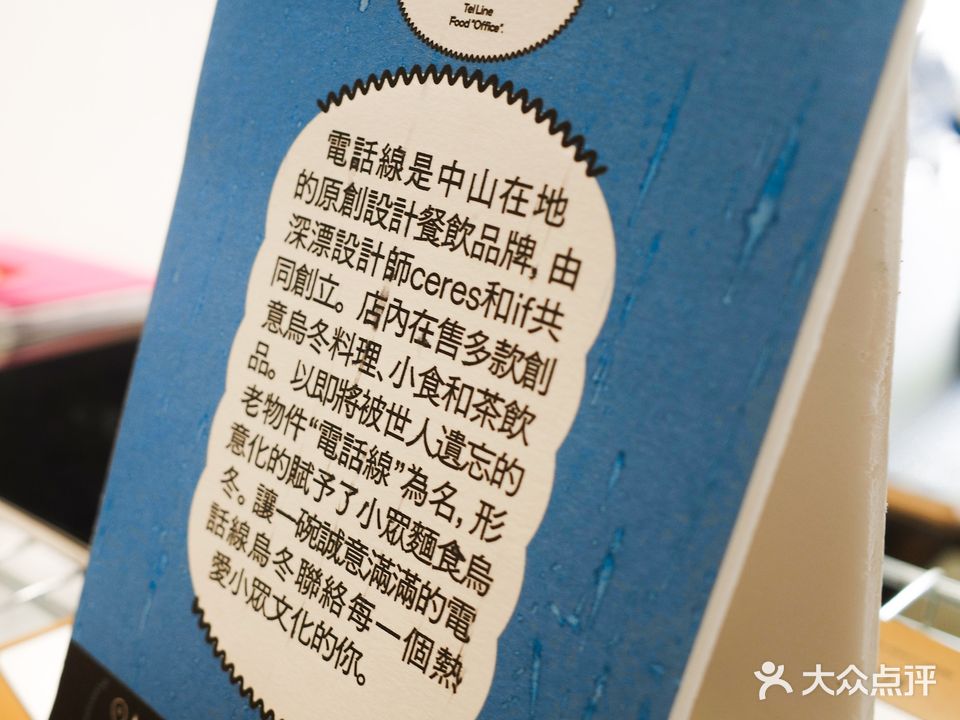 Tel Line
Food "Office".
電話線是中山在地
的原創設計餐飲品牌，由
深漂設計師ceres和if共
同創立。店內在售多款創
意烏冬料理、小食和茶飲
品。以即將被世人遺忘的
老物件“電話線”為名，形
意化的賦予了小眾麵食烏
冬。讓一碗誠意滿滿的電
話線烏冬聯絡每一個熱
愛小眾文化的你。
大众点评